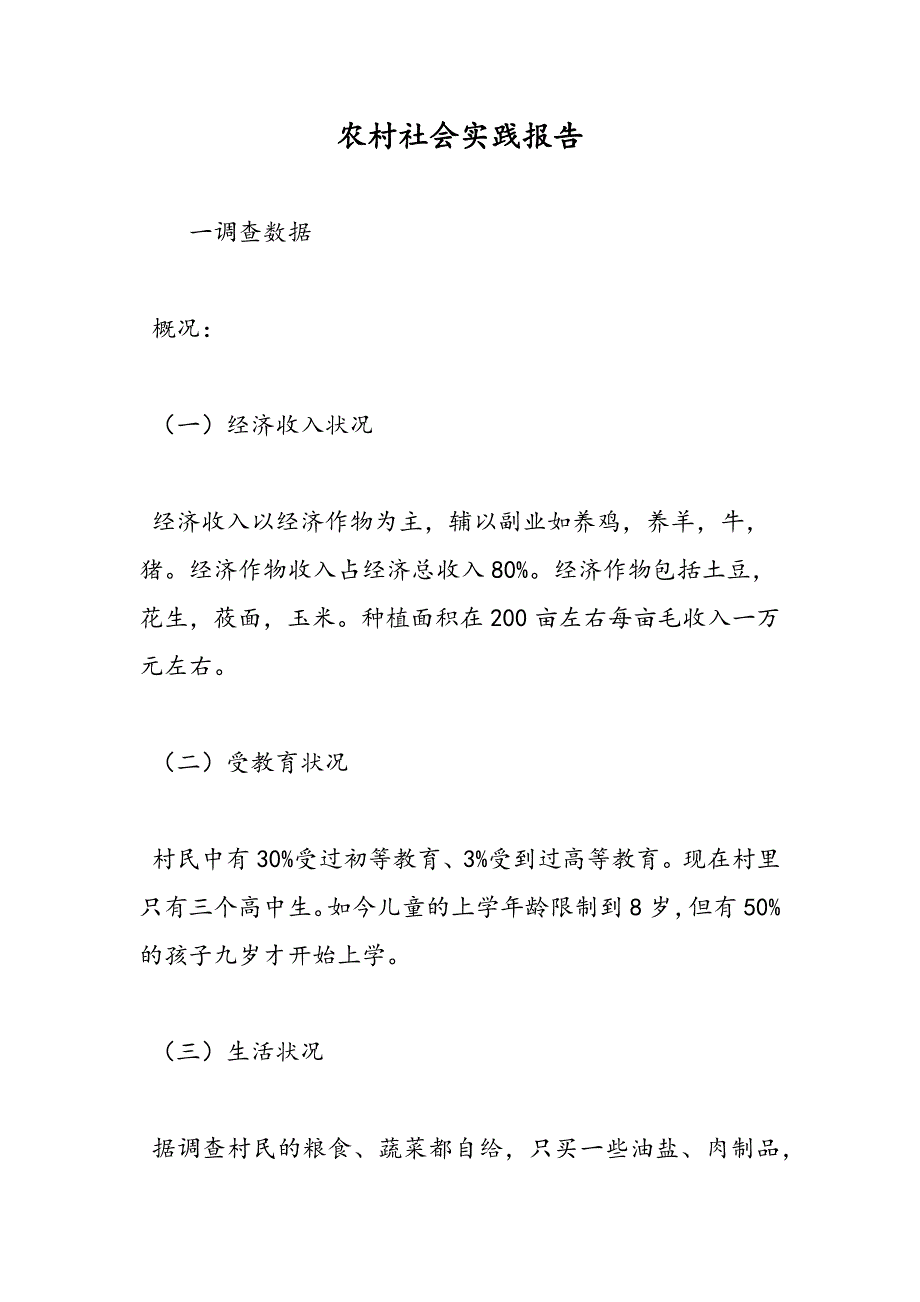 农村社会实践报告
一调查数据
概况：
（一）经济收入状况
经济收入以经济作物为主，辅以副业如养鸡，养羊，牛，
猪。经济作物收入占经济总收入80%。经济作物包括土豆，
花生，莜面，玉米。种植面积在 200 亩左右每亩毛收入一万
元左右。
（二）受教育状况
村民中有30%受过初等教育、3%受到过高等教育。现在村里
只有三个高中生。如今儿童的上学年龄限制到 8 岁，但有 50%
的孩子九岁才开始上学。
（三）生活状况
据调查村民的粮食、蔬菜都自给，只买一些油盐、肉制品，